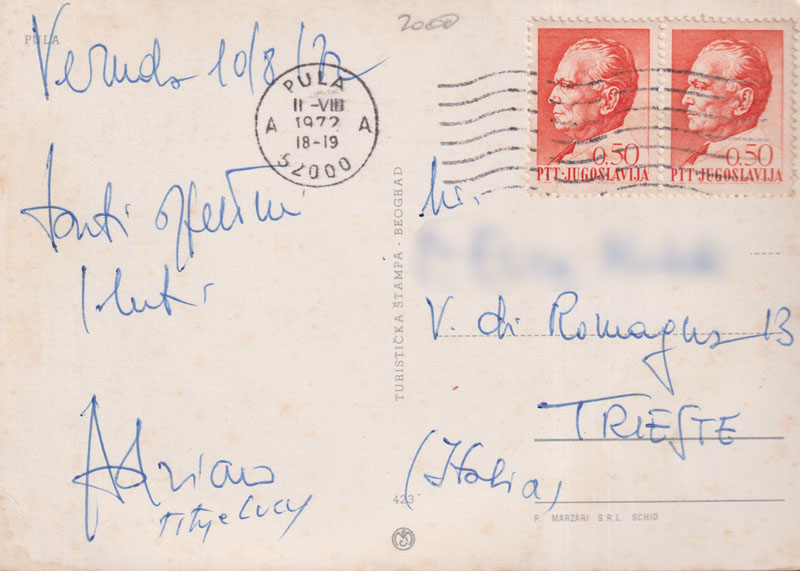 PULA
Veruda 10/8/72
2000
PULA
11-VIII
1972
18-19
A A
52000
0.50
PTT·JUGOSLAVIJA
0.50
PTT·JUGOSLAVIJA
tanti affettuosi
saluti
Adriano
Titty e Lucy
TURISTIČKA ŠTAMPA · BEOGRAD
V. di Romagna 13
TRIESTE
(Italia)
423
P. MARZARI S.R.L. SCHIO